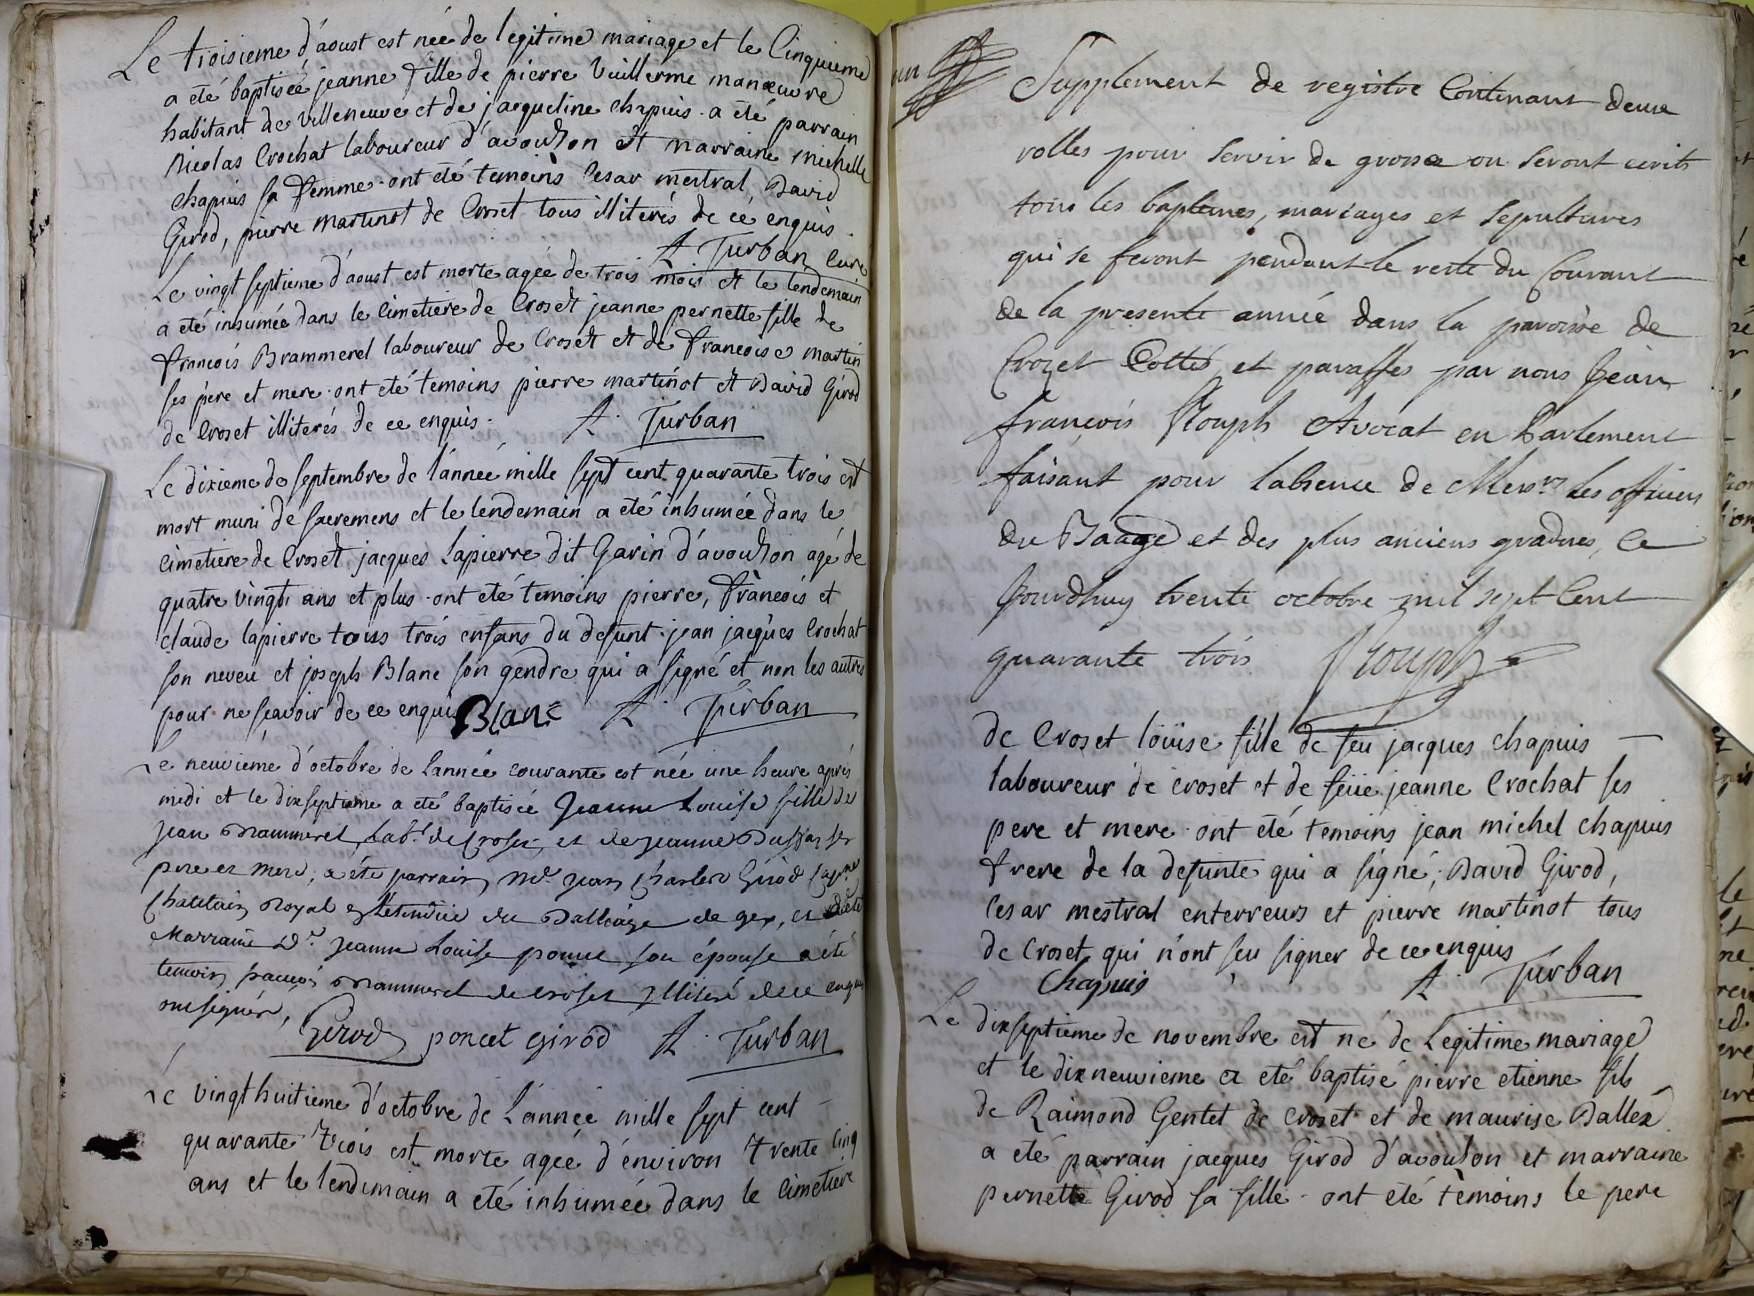 Le troisieme d'aoust est née de legitime mariage et le Cinquieme
a eté baptisée jeanne fille de pierre Vuillerme manœuvre
habitant de Villeneuve et de jacqueline chapuis. a été parrain
Nicolas Crochat laboureur d'avouson et marraine michelle
chapuis sa femme. ont eté temoins Cesar mestral, David
Girod, pierre martinot de Croset tous illiterés de cé enquis.
A Turban Curé
Le vingt septieme d'aoust est morte agée de trois mois et le lendemain
a eté inhumée dans le Cimetiere de Croset jeanne pernette fille de
francois Brammerel laboureur de Croset et de francoise martin
ses pere et mere. ont eté temoins pierre martinot et David Girod
de Croset illiterés de ce enquis. A. Turban
Le dixieme de septembre de l'année mille sept cent quarante trois est
mort muni de sacremens et le lendemain a eté inhumée dans le
cimetiere de Croset jacques Lapierre dit Garin d'avouson agé de
quatre vingti ans et plus. ont eté temoins pierre, francois et
claude lapierre tous trois enfans du defunt. jean jacques Crochat
son neveu et joseph Blanc son gendre qui a signé et non les autres
pour ne scavoir de ce enquis Blanc A. Turban
Le neuviéme d'octobre de lannée courante est née une heure aprés
midi et le dixseptieme a eté baptisée Jeanne Louise fille de
Jean Brammerel Labr. de Croset, et de Jeanne Duffar ses
pere et mere, a été parrain Mr. Jean Charles Girod
Chatelain Royal du Balliage de gex, et
Marraine De. Jeanne Louise poncet son épouse a été
temoin francois Brammerel de Croset Illiteré de ce enquis
ont signés,
Girod poncet girod A. Turban
Le vingt huitieme d'octobre de L'année mille sept cent
quarante trois est morte agée d'environ trente cinq
ans et le lendemain a eté inhumée dans le Cimetiere
un
Supplement de registre Contenant deux
rolles pour servir de grosse ou seront ecrits
tous les baptemes, mariages et sepultures
qui se feront pendant le reste du Courant
de la presente année dans la paroisse de
Crozet Cottés et paraffes par nous Jean
françois Rouph Avocat en Parlement
faisant pour labsence de Messrs. les officiers
du Baage et des plus anciens gradues, Ce
Jourdhuy trente octobre mil sept Cent
quarante trois Rouph
de Croset loüise fille de feu jacques chapuis
laboureur de croset et de feüe jeanne Crochat ses
pere et mere. ont eté temoins jean michel chapuis
frere de la defunte qui a signé, David Girod,
Cesar mestral enterreurs et pierre martinot tous
de Croset qui n'ont seu signer de ce enquis
Chapuis A. Turban
Le dixseptieme de novembre est né de Legitime mariage
et le dixneuvieme a eté baptisé pierre etienne fils
de Raimond Gentet de croset et de maurise Dallex
a eté parrain jacques Girod d'avouson et marraine
pernette Girod sa fille. ont eté temoins le pere